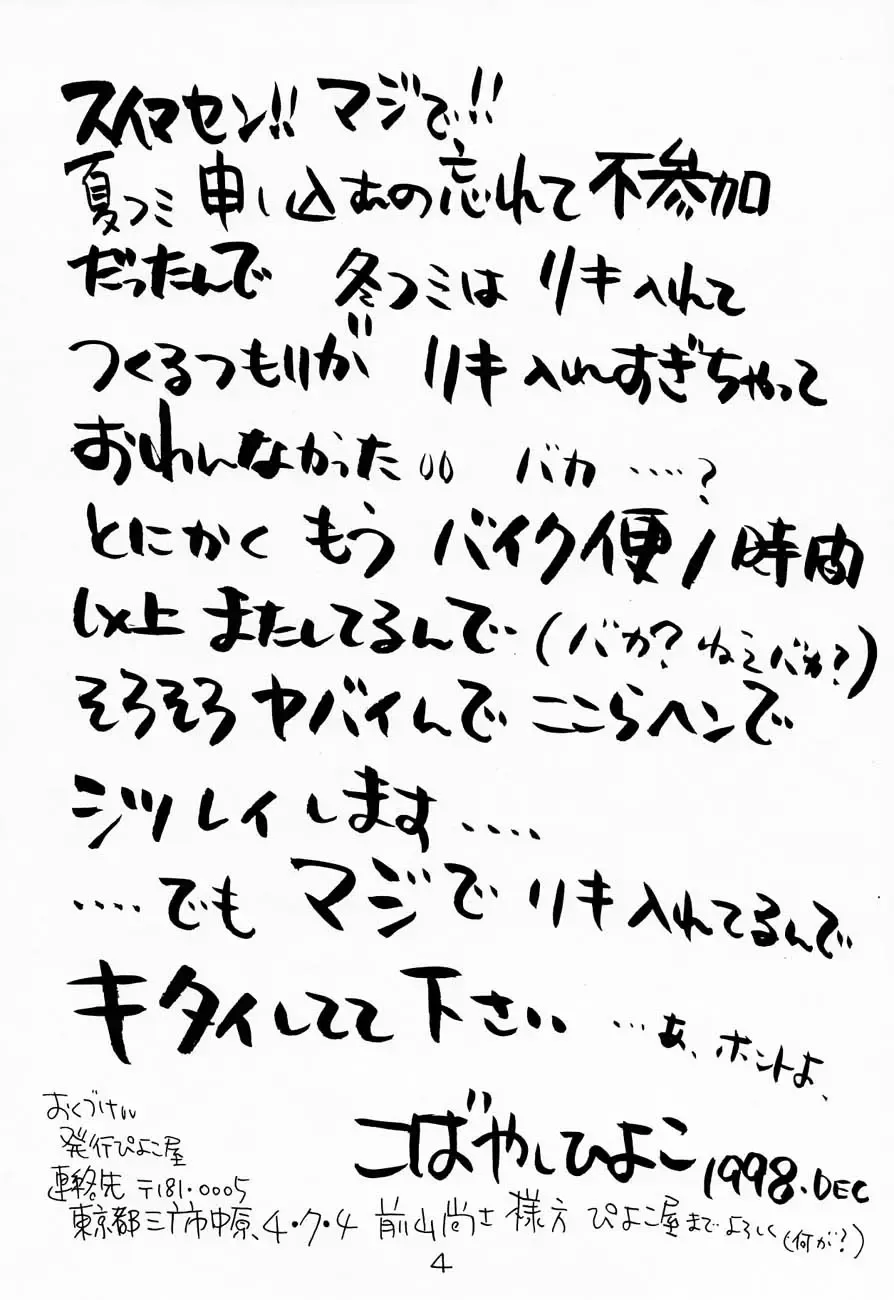 スイマセン!! マジで!!
夏コミ 申し込むの忘れて 不参加
だったんで 冬コミは リキ入れて
つくるつもりが リキ入れすぎちゃって
おわんなかった バカ ‥‥?
とにかく もう バイク便 1時間
以上 またしてるんで (バカ? ねぇバカ?)
そろそろ ヤバイんで ここらヘンで
シツレイします ‥‥
‥‥でも マジで リキ入れてるんで
キタイしてて下さい …あ、ホントよ、
こばやしひよこ 1998.DEC
おくづけ
発行ぴよこ屋
連絡先 〒181.0005
東京都三鷹市中原、4・7・4 前山尚士様方 ぴよこ屋まで よろしく(何が?)
4